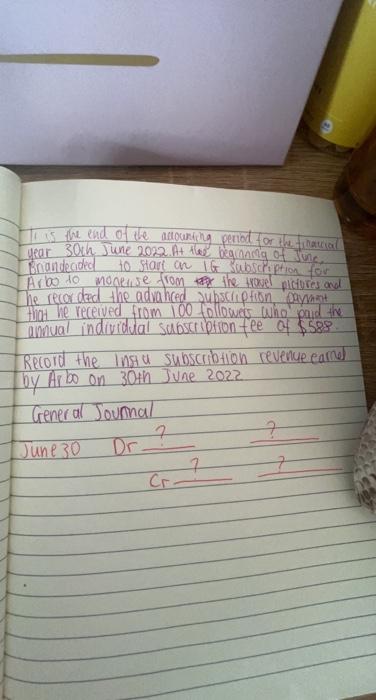 It is the end of the accounting period for the financial
year 30th June 2022. At the beginning of June,
Brian decided to start an IG subscription for
Arbo to monetise from the travel pictures and
he recorded the advanced subscription payment
that he received from 100 followers who paid the
annual individual subscription fee of $588.
Record the Insta subscribtion revenue earned
by Arbo on 30th June 2022
General Journal
June 30 Dr ? ?
Cr ? ?